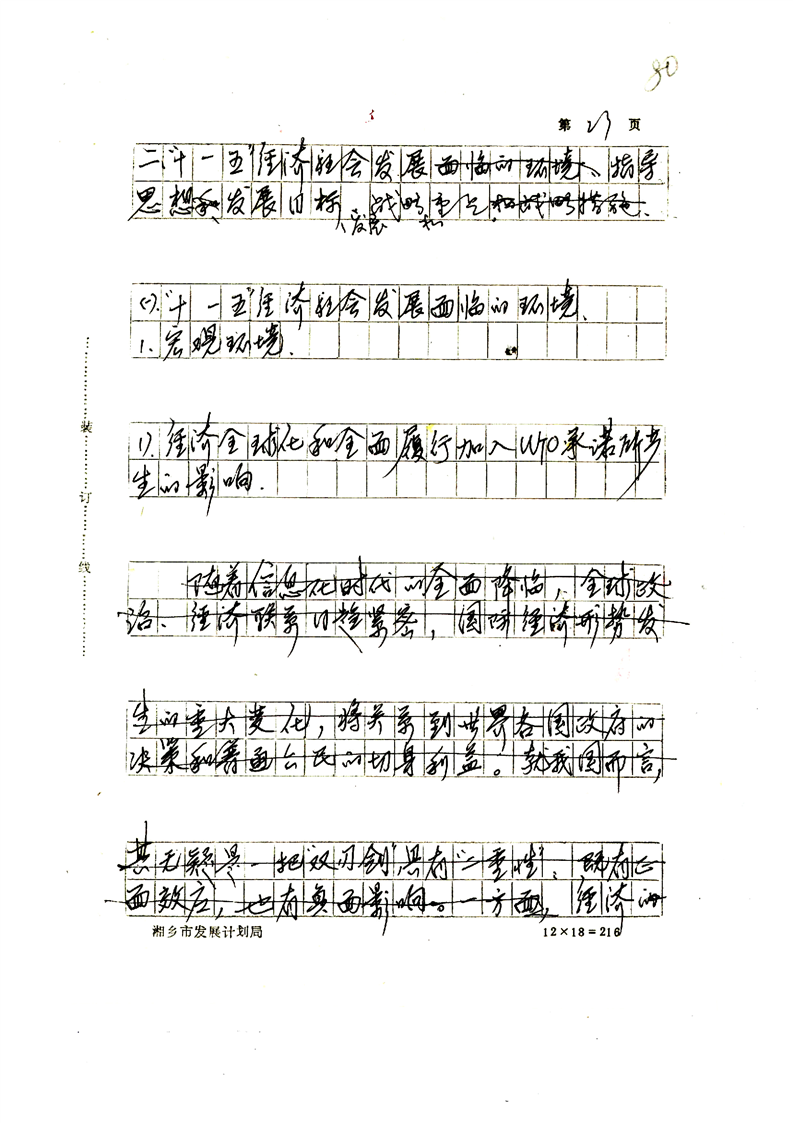 80
第 23 页
二、"十一五"经济社会发展面临的环境、指导
思想和发展目标、战略重点和战略措施、
发展 和
(一)、"十一五"经济社会发展面临的环境、
1、宏观环境、
1)、经济全球化和全面履行加入WTO承诺所产
生的影响、
随着信息化时代的全面降临,全球政
治、经济联系日趋紧密,国际经济形势发
生的重大变化,将关系到世界各国政府的
决策和普通公民的切身利益。就我国而言,
其无疑是一把"双刃剑"具有"二重性",既有正
面效应,也有负面影响。一方面,经济的
湘乡市发展计划局
12×18=216
装
订
线